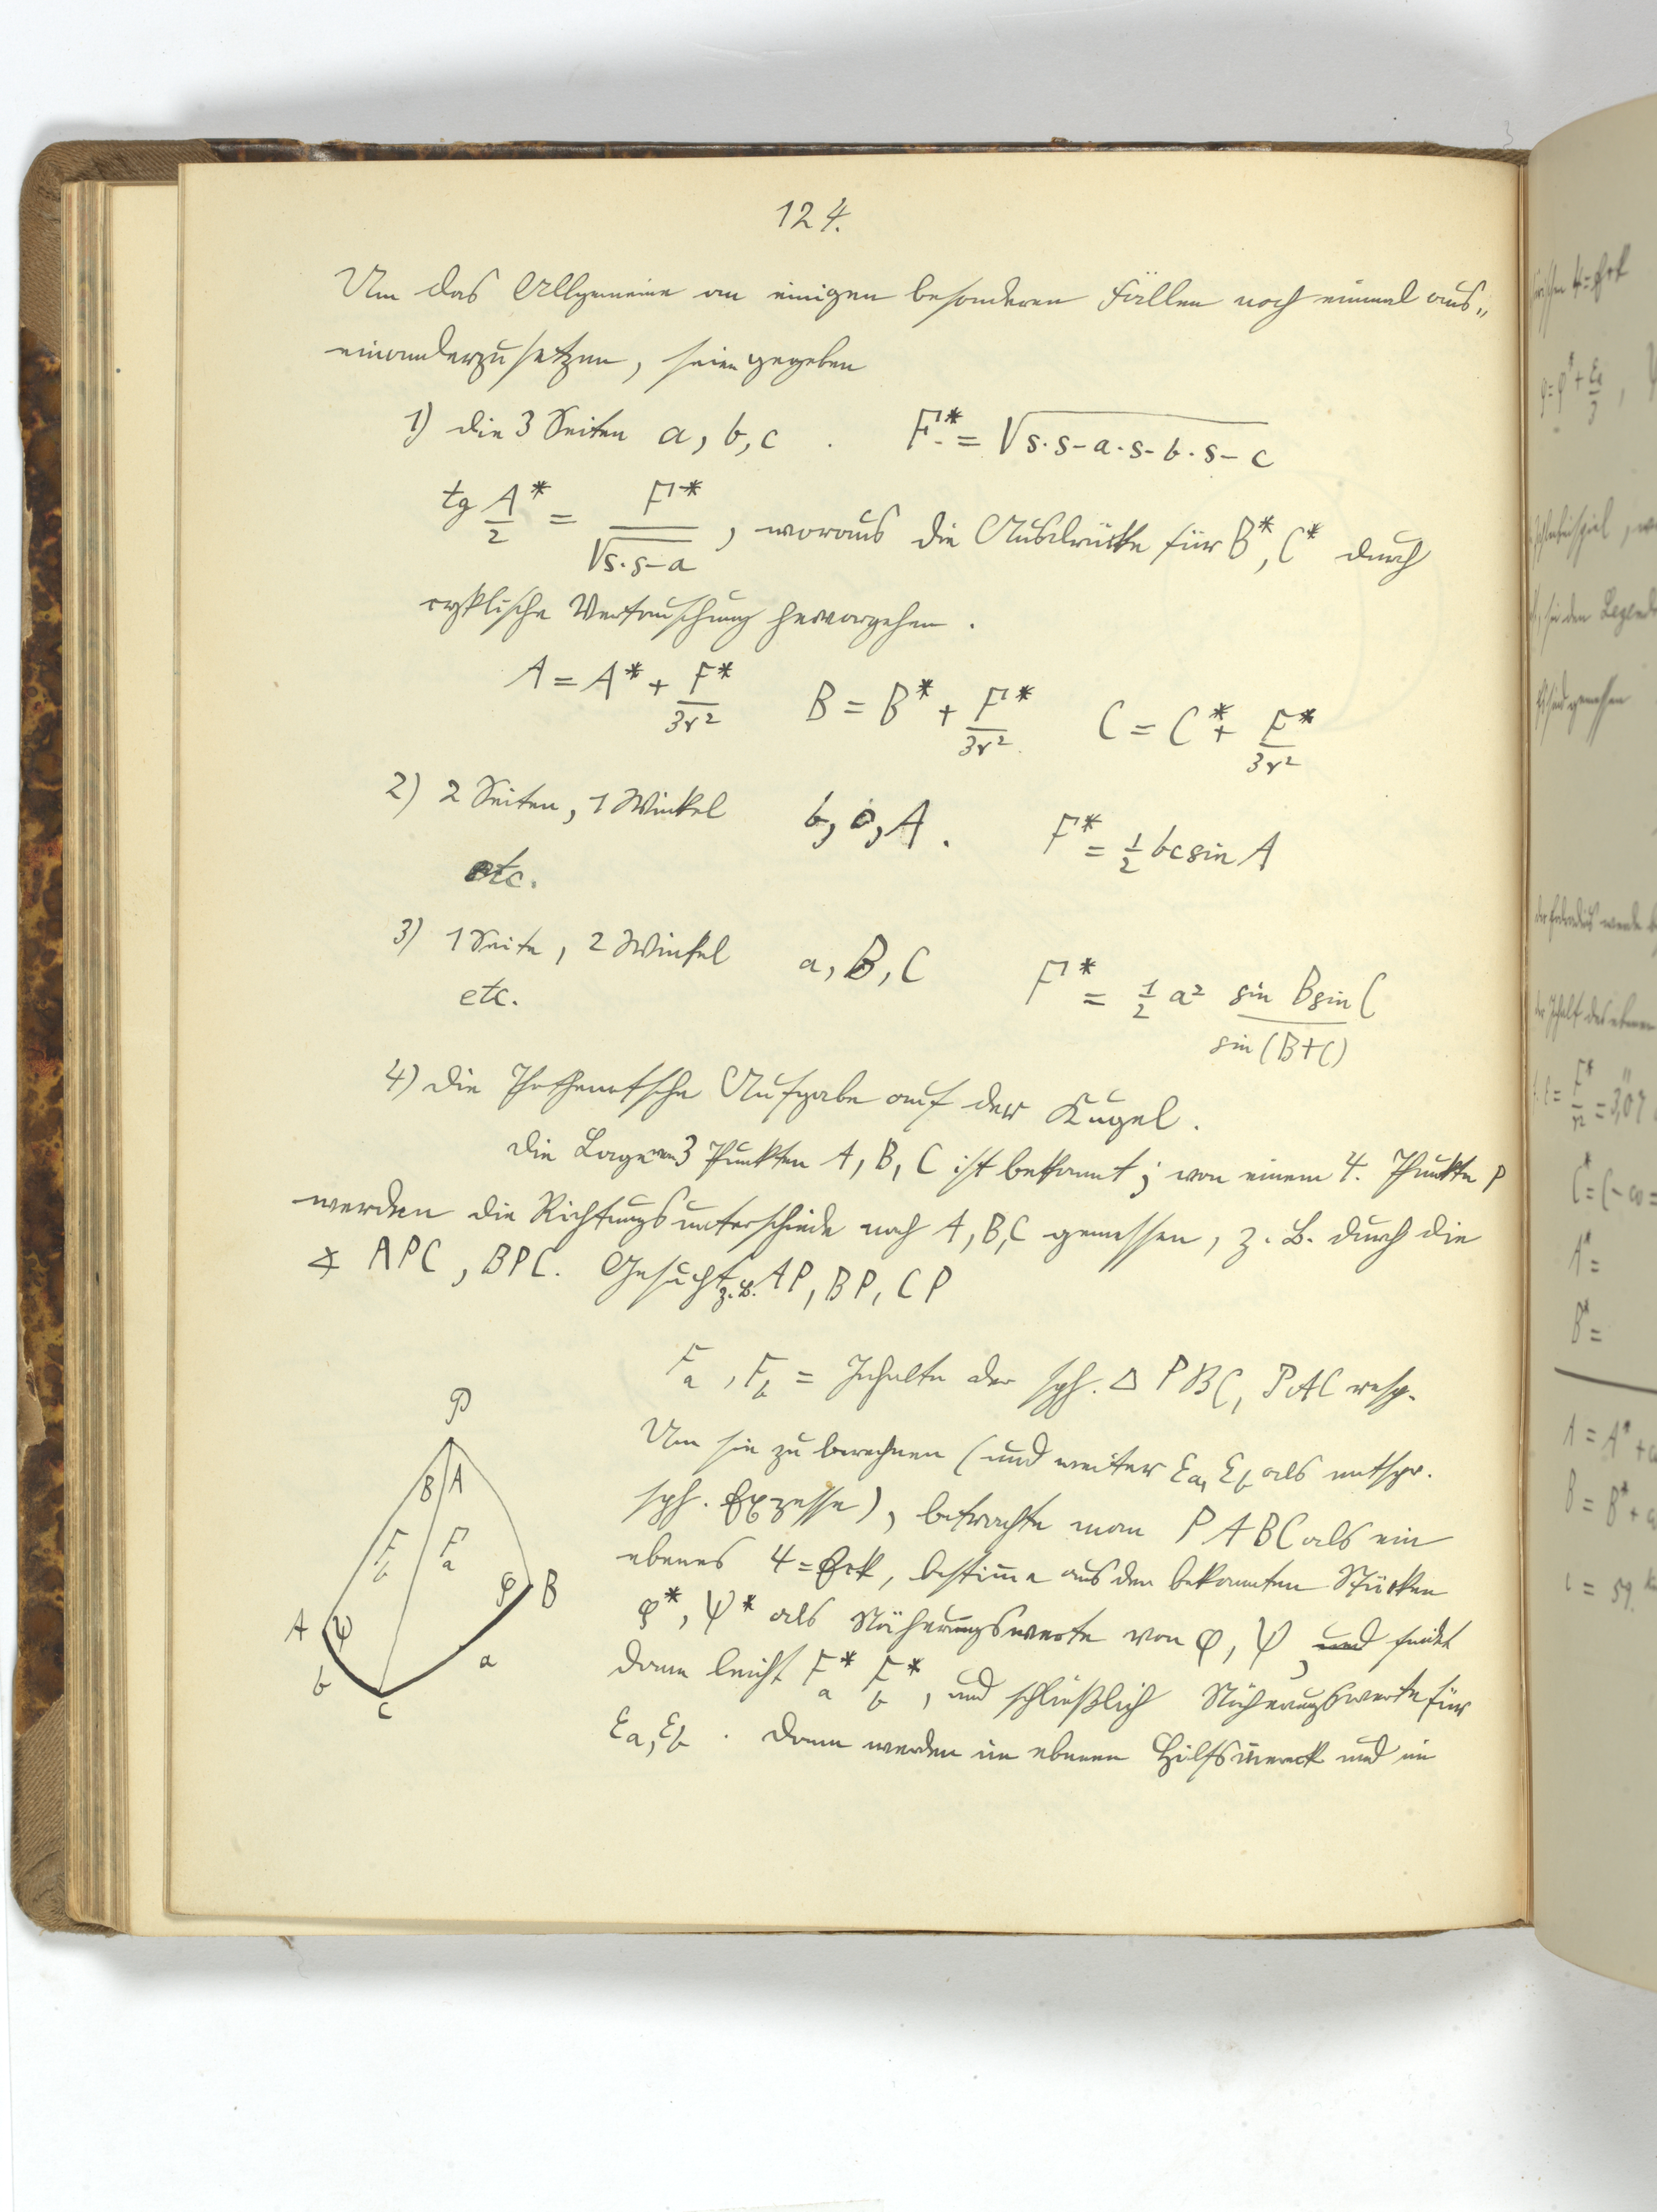 124.
Um das Allgemeine an einigen besonderen Fällen noch einmal aus„
einanderzusetzen, seien gegeben
1) die 3 Seiten a, b, c . F* = √s·s-a·s-b·s-c
tg A*/2 = F*/√s·s-a , woraus die Ausdrücke für B*, C* durch
cyklische Vertauschung hervorgehen.
A = A* + F*/3r² B = B* + F*/3r² C = C* + F*/3r²
2) 2 Seiten, 1 Winkel b, c, A. F* = 1/2 bc sin A
etc.
3) 1 Seite, 2 Winkel a, B, C F* = 1/2 a² sin B sin C / sin (B+C)
etc.
4) Die Pothenotsche Aufgabe auf der Kugel.
Die Lage von 3 Punkten A, B, C ist bekannt; von einem 4. Punkte P
werden die Richtungsunterschiede nach A, B, C gemessen, z. B. durch die
∡ APC, BPC. Gesucht z. B. AP, BP, CP
Fa, Fb = Inhalte der sph. △ PBC, PAC resp.
Um sie zu berechnen (und weiter εa, εb als entspr.
sph. Exzesse), betrachte man PABC als ein
ebenes 4=Eck, bestimme aus den bekannten Stücken
φ*, ψ* als Näherungswerte von φ, ψ, und findet
dann leicht Fa* Fb*, und schließlich Näherungswerte für
εa, εb . Dann werden im ebenen Hülfsviereck und im
P
B A
Fb Fa
φ B
A ψ
b a
C